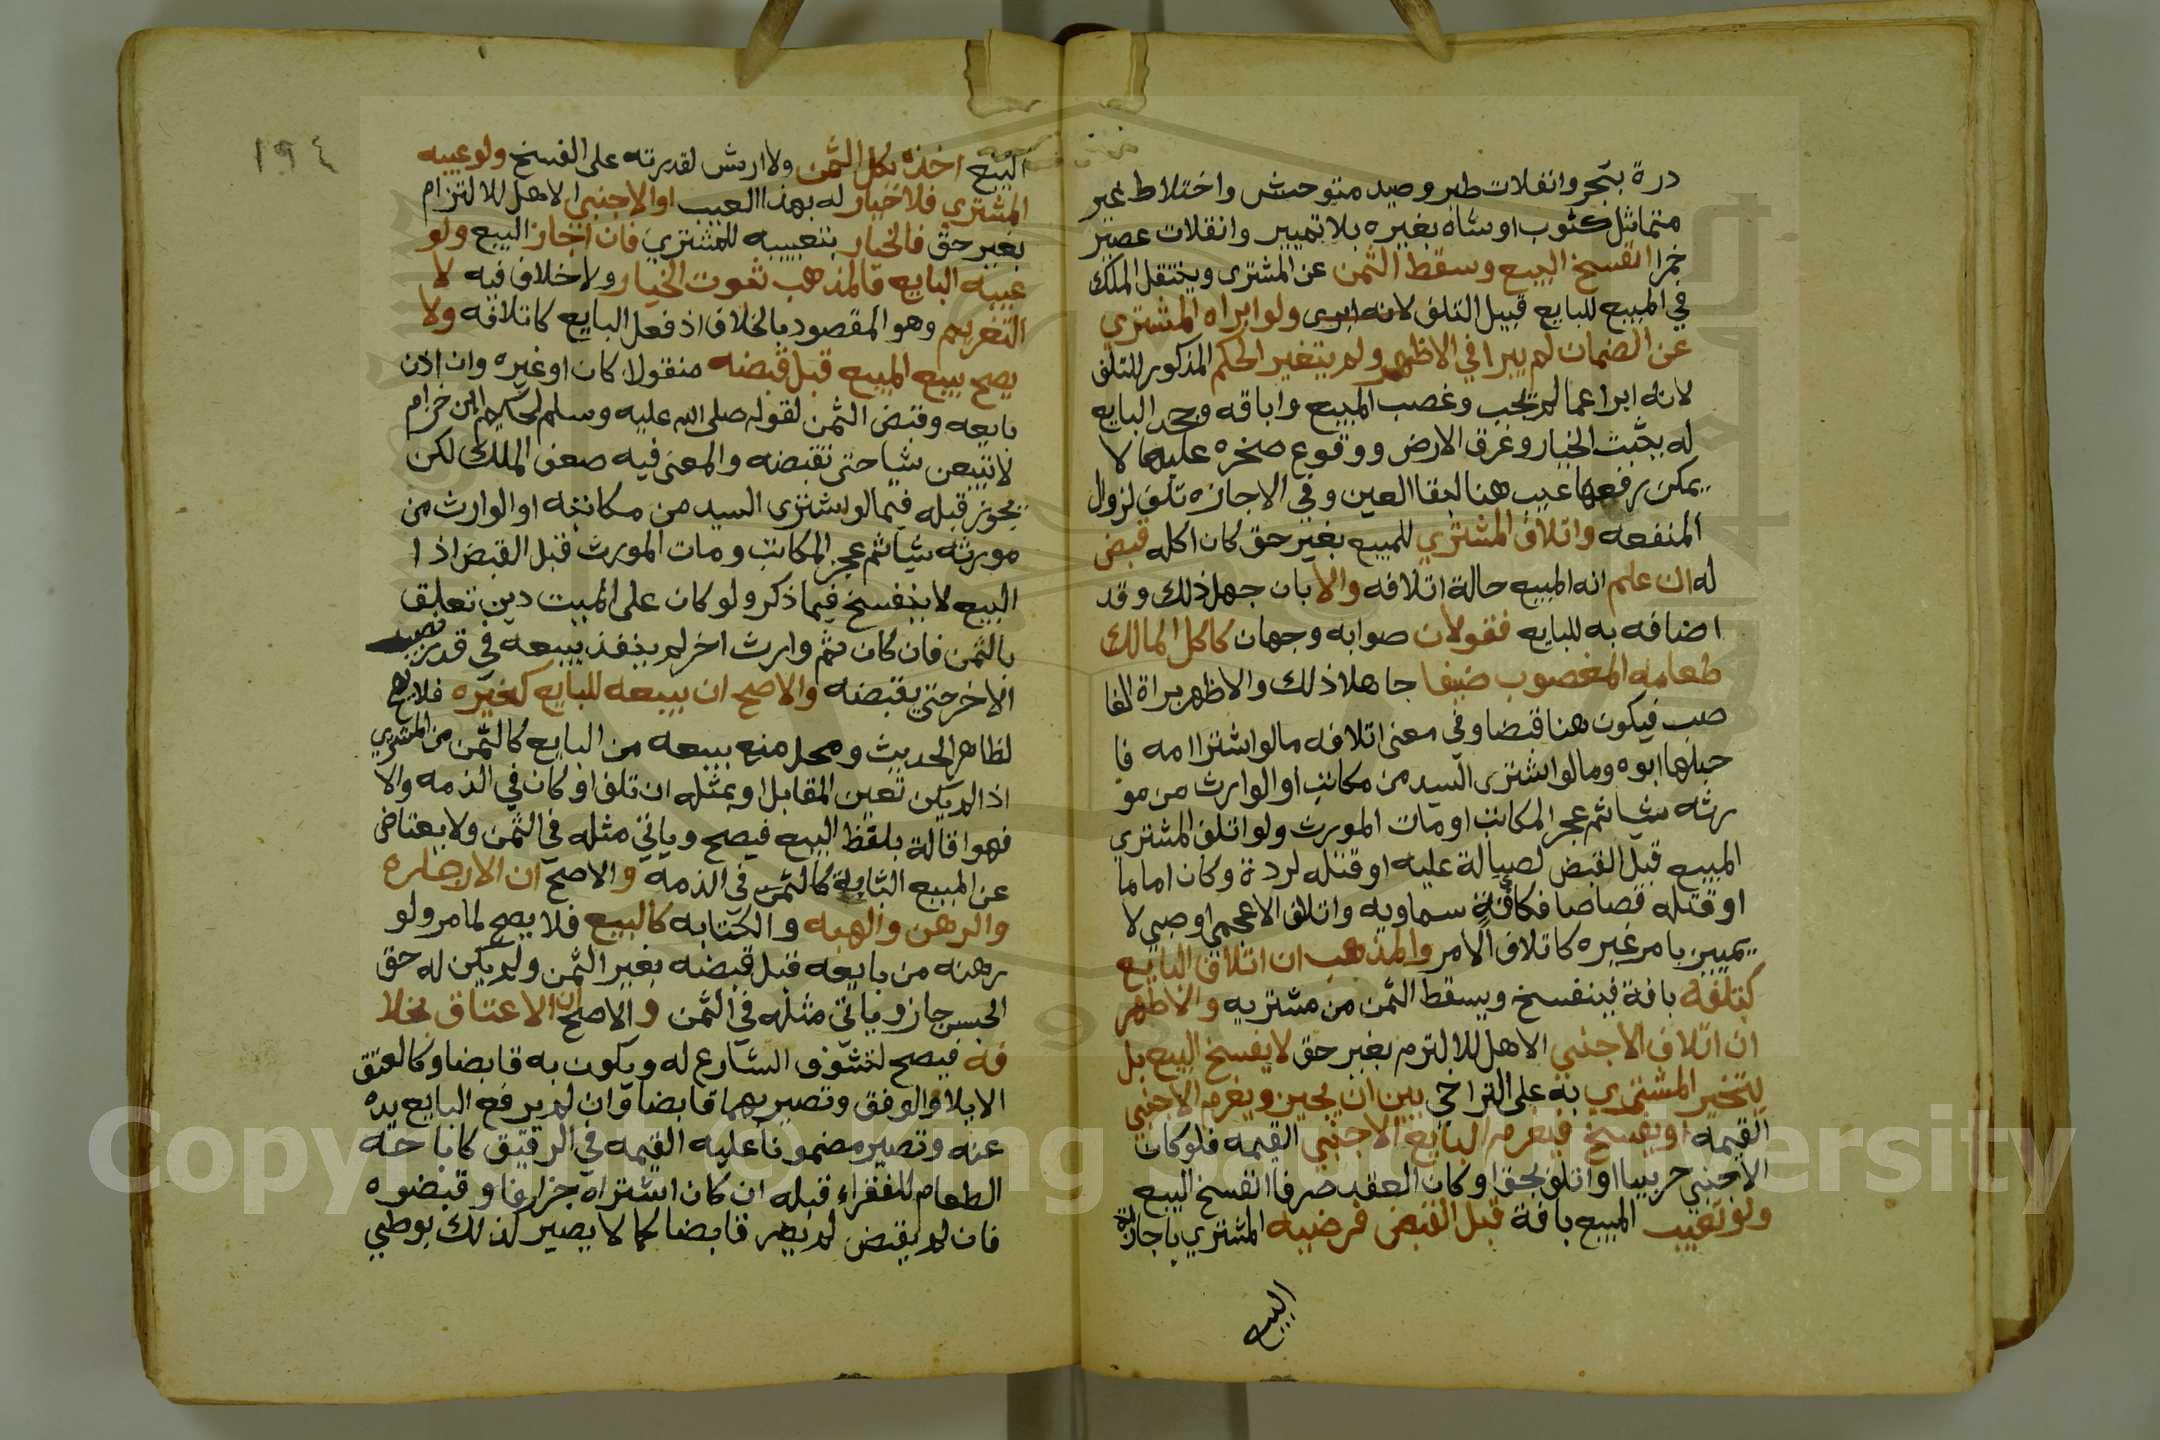 درة ببحر وانفلات طير وصيد متوحش واختلاط غير
متماثل كثوب او شاه بغيره بلا تمييز وانقلاب عصير
خمرا انفسخ البيع وسقط الثمن عن المشترى وينتقل الملك
في المبيع للبايع قبيل التلف ولو ابراه المشتري
عن الضمان لم يبرا في الاظهر ولم يتغير الحكم المذكور للتلف
لانه ابرا عما لم يجب وغصب المبيع واباقه وجحد البايع
له يثبت الخيار وغرق الارض ووقوع صخره عليها لا
يمكن رفعها عيب هنا لبقا العين وفي الاجازه تلف لزوال
المنفعه واتلاف المشتري للمبيع بغير حق كان اكله قبض
له ان علم انه المبيع حالة اتلافه والا بان جهل ذلك وقد
اضافه به للبايع فقولان صوابه وجهان كاكل المالك
طعامه المغصوب ضيفا جاهلا ذلك والاظهر براة الغا
صب فيكون هنا قبضا وفي معنى اتلافه ما لو اشترا امه فا
حبلها ابوه وما لو اشترى السيد من مكاتبه او الوارث من مو
رثه شيا ثم عجز المكاتب او مات المورث ولو اتلف المشتري
المبيع قبل القبض لصيالة عليه او قتله لردة وكان اماما
او قتله قصاصا فكافة سماويه واتلاف الاعجمي او صبي لا
يميز بامر غيره كاتلاف الامر والمذهب ان اتلاف البايع
كتلفه بافة فينفسخ ويسقط الثمن من مشتريه والاظهر
ان اتلاف الاجنبي الاهل للالتزم بغير حق لا يفسخ البيع بل
يتخير المشتري به على التراخي بين ان يجيز ويغرم الاجنبي
القيمه او يفسخ فيغرم البايع الاجنبي القيمه فلو كان
الاجنبي حربيا او اتلف بحق او كان العقد صرفا انفسخ البيع
ولو تعيب المبيع بافة قبل القبض فرضيه المشتري باجازة
البيع
١٩٤
البيع اخذه بكل الثمن ولا ارش لقدرته على الفسخ ولو عيبه
المشتري فلا خيار له بهذا العيب او الاجنبي الاهل للالتزام
بغير حق فالخيار بتعييبه للمشتري فان اجاز البيع ولو
عيبه البايع فالمذهب ثبوت الخيار ولا خلاف فيه لا
التغريم وهو المقصود بالخلاف اذ فعل البايع كاتلافه ولا
يصح بيع المبيع قبل قبضه منقولا كان او غيره وان اذن
بايعه وقبض الثمن لقوله صلى الله عليه وسلم لحكيم ابن حزام
لا تبيعن شيا حتى تقبضه والمعنى فيه ضعف الملك لكن
يجوز قبله فيما لو اشترى السيد من مكاتبه او الوارث من
مورثه شيا ثم عجز المكاتب ومات المورث قبل القبض اذ ا
البيع لا ينفسخ فيما ذكر ولو كان على الميت دين تعلق
بالثمن فان كان ثم وارث اخر لم ينفذ بيعه في قدر نصيب
الاخر حتى يقبضه والاصح ان بيعه للبايع كغيره فلا يصح
لظاهر الحديث ومحل منع بيعه من البايع كالثمن من المشتري
اذا لم يكن بعين المقابل او بمثله ان تلف او كان في الذمه والا
فهو اقالة بلفظ البيع فيصح وياتي مثله في الثمن ولا يعتاض
عن المبيع الثابت كالثمن في الذمه والاصح ان الاجاره
والرهن والهبه والكتابه كالبيع فلا يصح لما مر ولو
رهنه من بايعه قبل قبضه بغير الثمن ولم يكن له حق
الحبس جاز وياتي مثله في الثمن و الاصح ان الاعتاق بخلا
فه فيصح لتشوف الشارع له ويكون به قابضا وكالعتق
الايلاد والوقف وتصير بهما قابضا وان لم يرفع البايع يده
عنه وتصير مضمونا عليه القيمه في الرقيق كاباحة
الطعام للفقراء قبله ان كان اشتراه جزافا وقبضوه
فان لم يقبض لم يصر قابضا كما لا يصير كذلك بوطي
Copyright © King Saud University